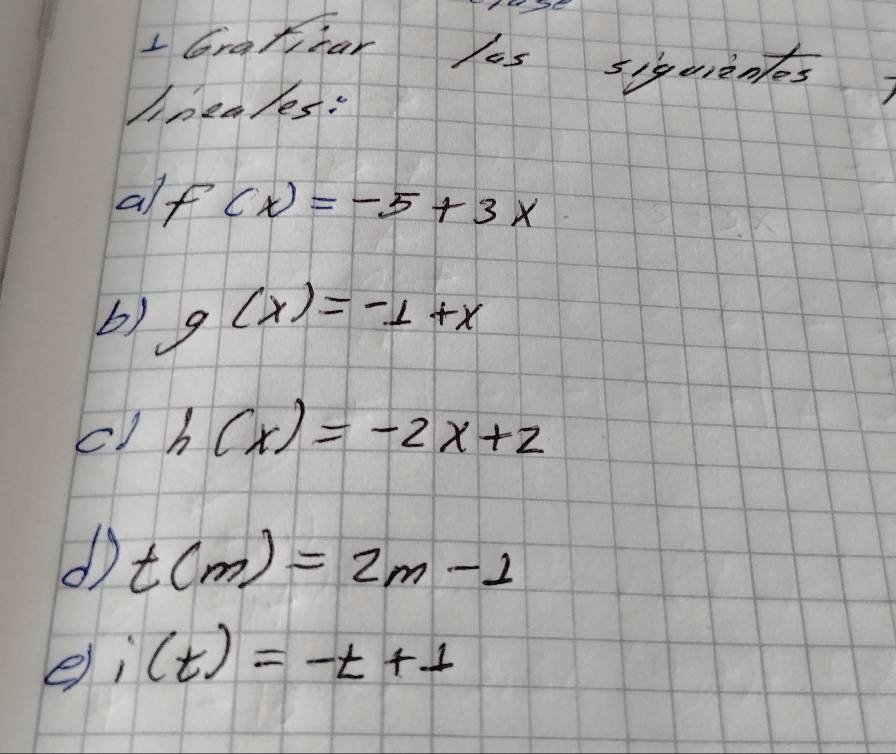 1 Graficar las siguientes
lineales:
a) f (x) = -5 + 3x
b) g (x) = -1 + x
c) h (x) = -2x + 2
d) t(m) = 2m - 1
e) i(t) = -t + 1